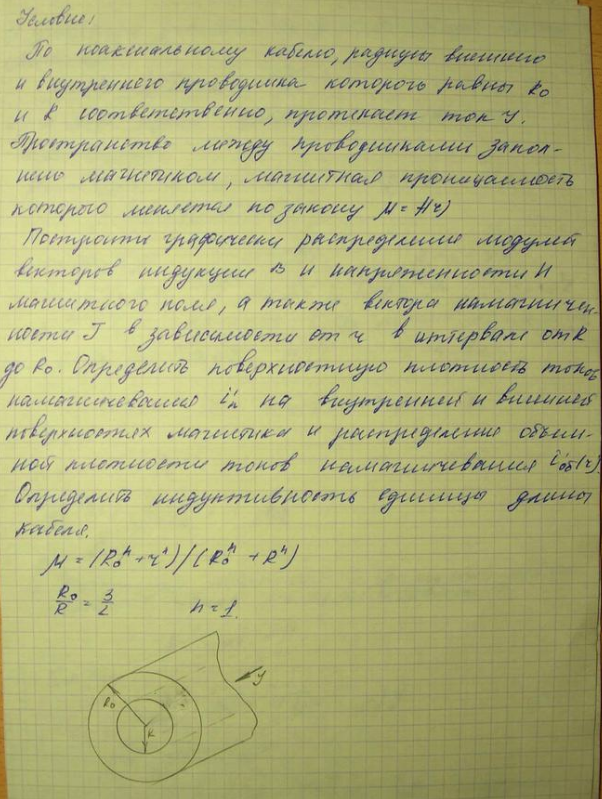 Условие:
По коаксиальному кабелю, радиусы внешнего
и внутреннего проводника которого равны R₀
и R соответственно, протекает ток Y.
Пространство между проводниками запол-
нено магнетиком, магнитная проницаемость
которого меняется по закону μ = f(r)
Построить графически распределение модулей
векторов индукции B и напряженности H
магнитного поля, а также вектора намагничен-
ности J в зависимости от r в интервале от R
до R₀. Определить поверхностную плотность токов
намагничивания i'ₙ на внутренней и внешней
поверхностях магнетика и распределение объем-
ной плотности токов намагничивания i'об(r).
Определить индуктивность единицы длины
кабеля.
μ = (R₀ⁿ + rⁿ)/(R₀ⁿ + Rⁿ)
R₀/R = 3/2 n = 1.
R₀
R
Y